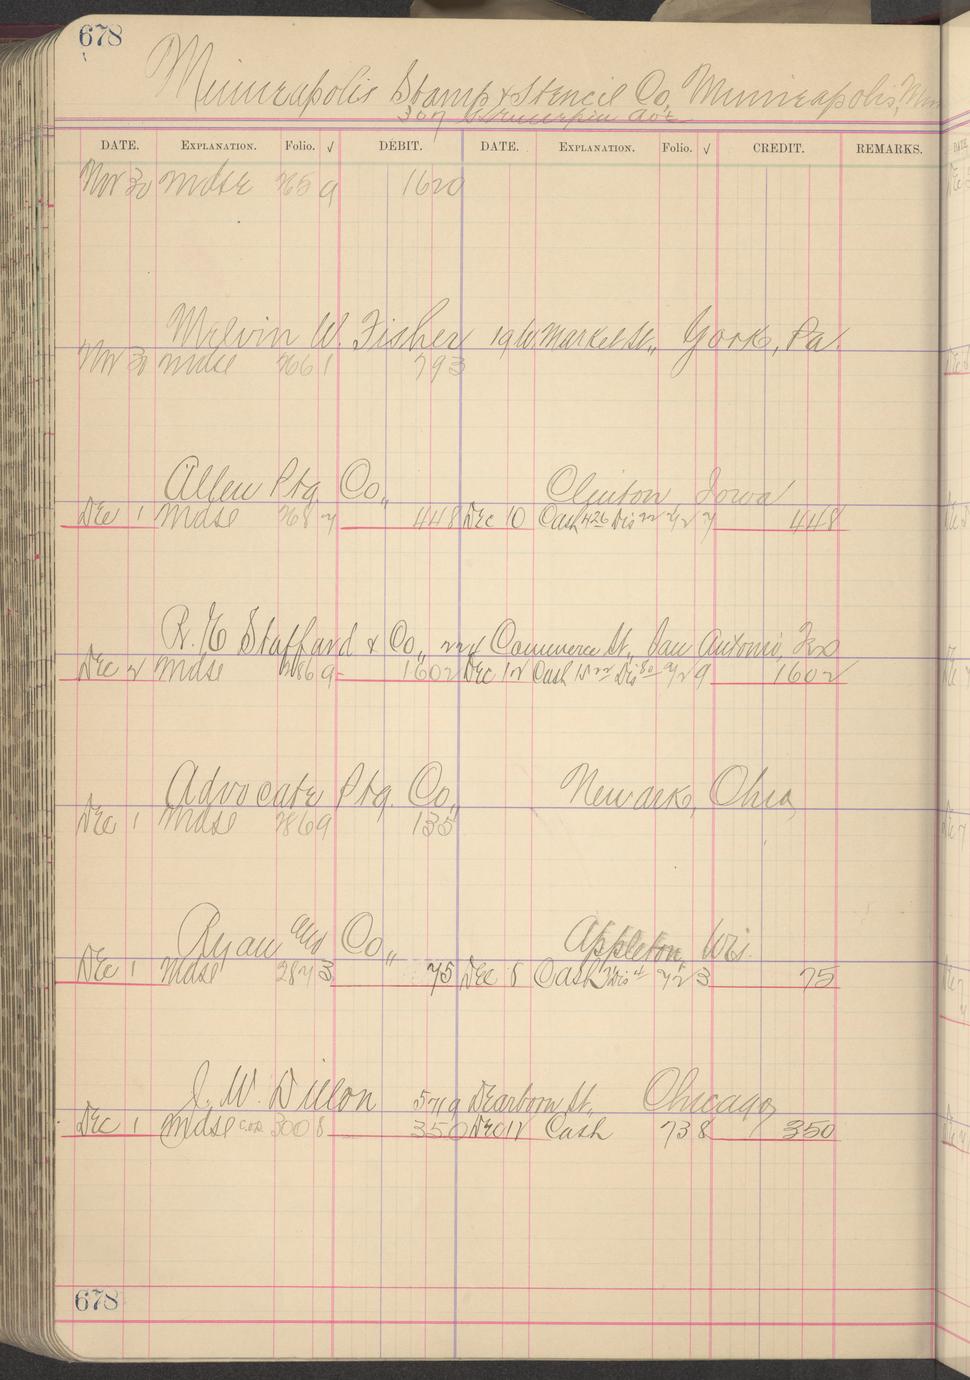 678
Minneapolis Stamp & Stencil Co, Minneapolis, Minn
307 Hennepin Ave
DATE. EXPLANATION. Folio. √ DEBIT. DATE. EXPLANATION. Folio. √ CREDIT. REMARKS.
Nov 30 Mdse 1620
Melvin W. Fisher 19 W. Market St., York, Pa.
Nov 30 Mdse 2661 793
Allen Ptg Co., Clinton, Iowa
Dec 1 Mdse 448 Dec 10 Cash 426 Dis 22 727 448
R. E Stafford & Co., 224 Commerce St., San Antonio, Tex
Dec 2 Mdse 1602 Dec 12 Cash 1522 Dis 80 729 1602
Advocate Ptg. Co., Newark, Ohio
Dec 1 Mdse 2869 135
Ryan and Co., Appleton, Wis.
Dec 1 Mdse 2873 75 Dec 8 Cash 71 Dis 4 723 75
J. W. Dillon 5719 Dearborn St., Chicago
Dec 1 Mdse 3008 350 Dec 12 Cash 738 350
678